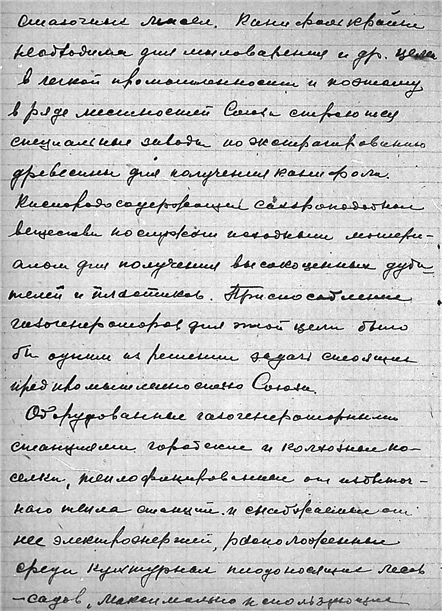 смазочных масел. Канифоль крайне
необходима для мыловарения и др. целей
в легкой промышленности и поэтому
в ряде местностей Союза строются
специальные заводы по экстрагированию
древесины для получения канифоли.
Кислородосодержащие сахароподобные
вещества послужат исходным матери-
алом для получения высокоценных дуби-
телей и пластиков. Приспособление
газогенераторов для этой цели было
бы одним из решении задач стоящих
пред промышленностью Союза.
Оборудованные газогенераторными
станциями городские и колхозные по-
селки, теплофицированные от избыточ-
ного тепла станций и снабжаемые от
нее электроэнергией, расположенные
среди культурных плодоносящих лесов
-садов, максимально использующие